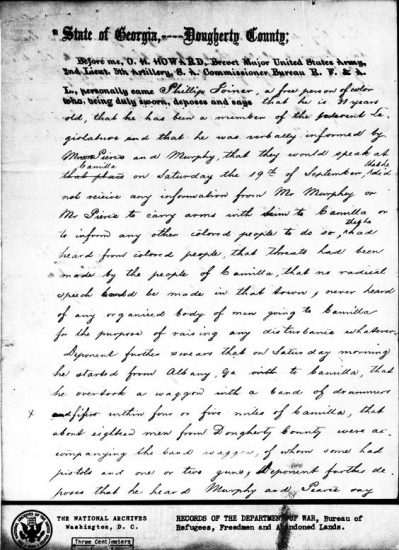 State of Georgia,----Dougherty County;
Before me, O. H. HOWARD, Brevet Major United States Army,
2nd. Lieut. 5th Artillery, S. A. Commissioner Bureau R. F. & A.
L., personally came Phillip Joiner, a free person of color
who, being duly sworn, deposes and says that he is 31 years
old, that he has been a member of the present Le-
gislature and that he was verbally informed by
Messrs Pierce and Murphy, that they would speak at
Camilla
that place on Saturday the 19th of September, that he did
not recieve any information from Mr Murphy or
Mr Pierce to carry arms with him to Camilla or
to inform any other colored people to do so, that he had
heard from colored people, that threats had been
made by the people of Camilla, that no radical
speech should be made in that town, never heard
of any organised body of men going to Camilla
for the purpose of raising any disturbance whatsoever.
Deponent further swears that on Saturday morning
he started from Albany, Ga to Camilla, that
he overtook a waggon with a band of drummers
and fifers within four or five miles of Camilla, that
x
about eighteen men from Dougherty County were ac-
companying the band waggon, of whom some had
pistols and one or two guns, Deponent further de-
poses that he heard Murphy and Pierce say
THE NATIONAL ARCHIVES
Washington, D. C.
RECORDS OF THE DEPARTMENT OF WAR, Bureau of
Refugees, Freedmen and Abandoned Lands.
Three Centimeters